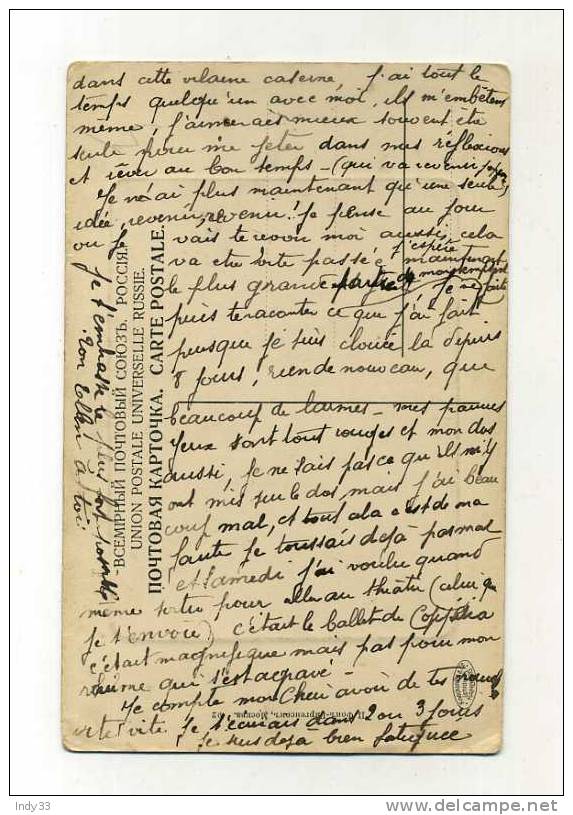 dans cette vilaine caserne. J'ai tout le
temps quelqu'un avec moi, ils m'embêtent
même, j'aimerais mieux souvent être
seule pour me jeter dans mes réflexions
et rêver au bon temps - (qui va revenir
Je n'ai plus maintenant qu'une seule
idée, revenir, revenir! Je pense au jour
ou Je vais te revoir moi aussi, cela
va etre vite passé j'espère maintenant
le plus grande partie de mon temps est
faite Je ne
puis te raconter ce que j'ai fait
puisque je suis clouée la depuis
8 jours, rien de nouveau, que
beaucoup de larmes - mes pauvres
yeux sont tout rouges et mon dos
aussi, Je ne sais pas ce qu'ils m'y
ont mis sur le dos mais j'ai beau
coup mal, et tout cela c'est de ma
faute Je toussais dejà pas mal
et Samedi j'ai voulu quand
même sortir pour aller au théâtre (celui que
Je t'envoie) c'était le ballet de Coppélia
c'était magnifique mais pas pour mon
rhume qui s'est aggravé -
Je compte mon Cheri avoir de tes nouvelles
vite vite. Je t'ecrirais dans 2 ou 3 jours
Je suis dejà bien fatiguée
Je t'embrasse le plus fort possible
Ton à toi
ВСЕМІРНЫЙ ПОЧТОВЫЙ СОЮЗЪ. РОССІЯ.
UNION POSTALE UNIVERSELLE RUSSIE.
ПОЧТОВАЯ КАРТОЧКА. CARTE POSTALE.
Indy33
www.delcampe.net